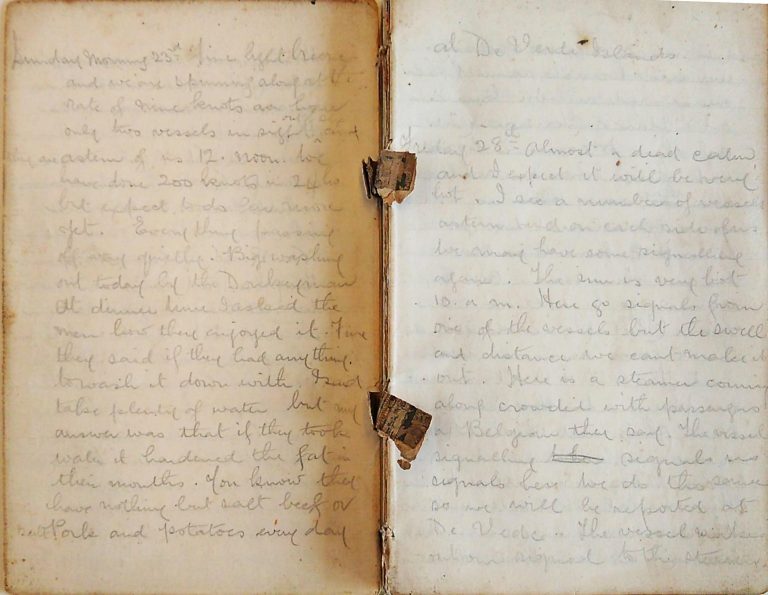 Sunday Morning 23rd Fine light breeze
and we are spinning along at the
rate of nine knots an hour
only two vessels in sight and
astern of us 12. noon. We
have done 200 knots in 24 ho
but expect to do far more
yet. Everything passing
of very quietly. Big washing
out today by the Donkeyman
At dinner time I asked the
men how they enjoyed it. Fine
they said if they had anything
to wash it down with. I said
take plenty of water but my
answer was that if they took
water it hardened the fat in
their mouths. You know they
have nothing but salt beef or
Pork and potatoes every day
at De Verde Islands.
Friday 28th Almost a dead calm
and I expect it will be very
hot. I see a number of vessels
astern and on each side of us
We may have some signalling
again. The sun is very hot
10. a.m. Here go signals from
one of the vessels but the swell
and distance we cant make it
out. Here is a steamer coming
along crowded with passengers
a Belgian they say. The vessel
signalling signals
signals here we do the same
so we will be reported at
De Verde. The vessel
signal to the steamer